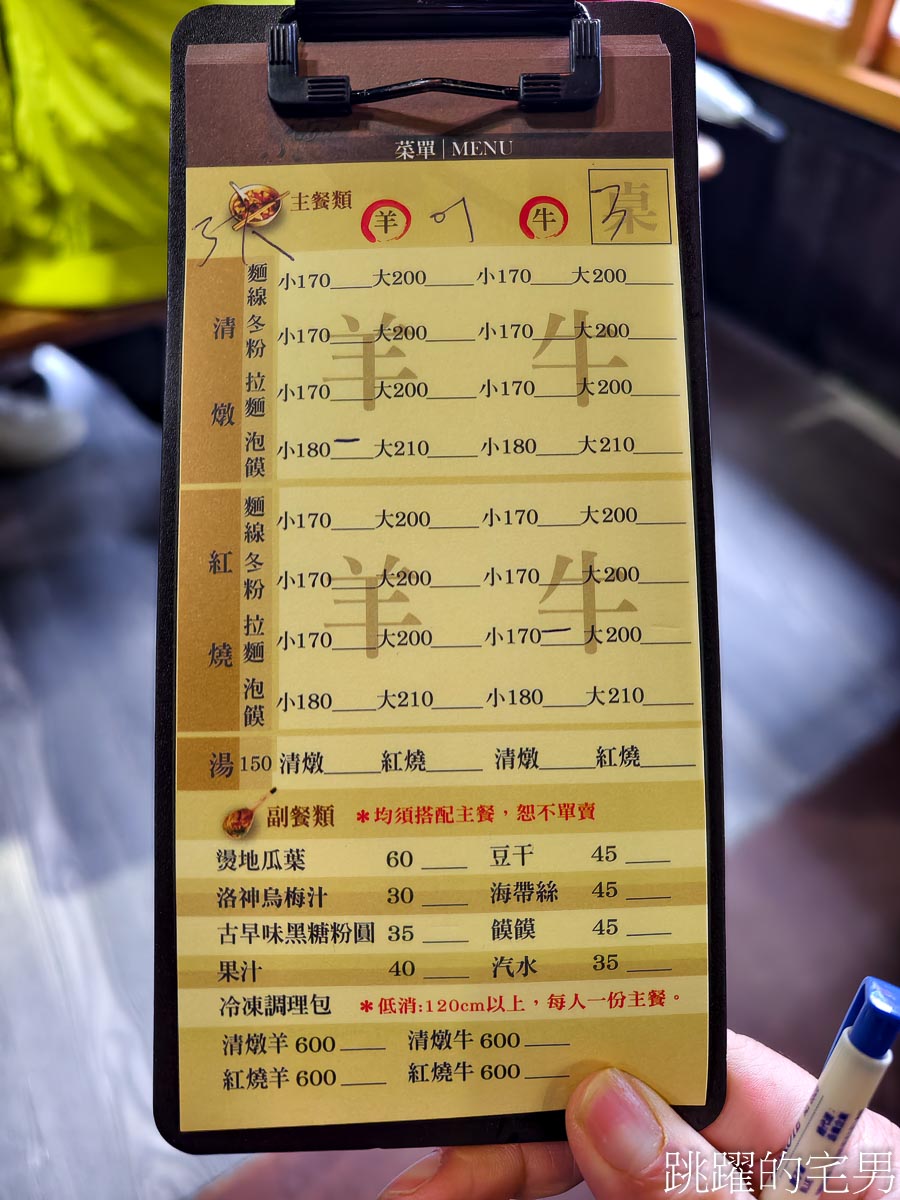 菜單 | MENU
主餐類 羊 牛 桌
清燉
麵線 小170____大200____ 小170____大200____
冬粉 小170____大200____ 小170____大200____
拉麵 小170____大200____ 小170____大200____
泡饃 小180____大210____ 小180____大210____
羊 牛
紅燒
麵線 小170____大200____ 小170____大200____
冬粉 小170____大200____ 小170____大200____
拉麵 小170____大200____ 小170____大200____
泡饃 小180____大210____ 小180____大210____
羊 牛
湯 150 清燉____紅燒____ 清燉____紅燒____
副餐類 *均須搭配主餐，恕不單賣
燙地瓜葉 60 ____ 豆干 45 ____
洛神烏梅汁 30 ____ 海帶絲 45 ____
古早味黑糖粉圓 35 ____ 饃饃 45 ____
果汁 40 ____ 汽水 35 ____
冷凍調理包 *低消:120cm以上，每人一份主餐。
清燉羊 600____ 清燉牛 600____
紅燒羊 600____ 紅燒牛 600____
跳躍的宅男